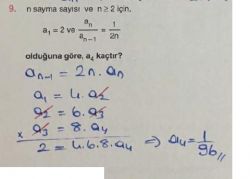 9. n sayma sayısı ve n ≥ 2 için,
a₁ = 2 ve aₙ / aₙ₋₁ = 1 / 2n
olduğuna göre, a₄ kaçtır?
aₙ₋₁ = 2n . aₙ
a₁ = 4 . a₂
a₂ = 6 . a₃
x a₃ = 8 . a₄
2 = 4.6.8.a₄ ⇒ a₄ = 1/96 //